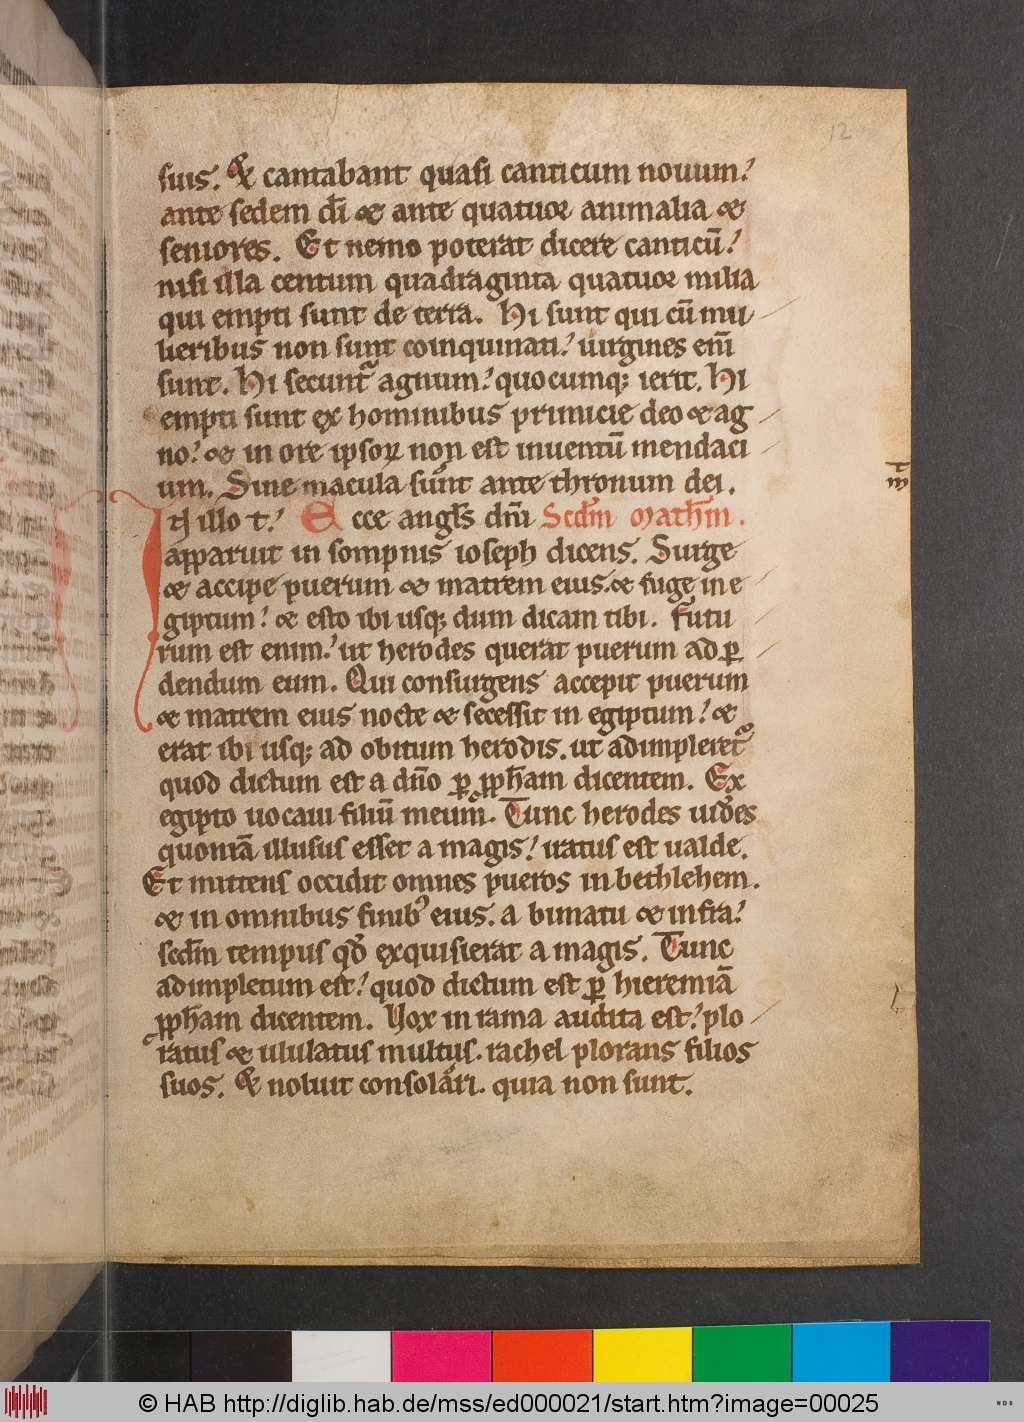 12
suis. & cantabant quasi canticum nouum.
ante sedem dī & ante quatuor animalia &
seniores. Et nemo poterat dicere canticū.
nisi illa centum quadraginta quatuor milia
qui empti sunt de terra. Hi sunt qui cū mu
lieribus non sunt coinquinati. uirgines enī
sunt. Hi secunt᷑ agnum. quocumq; ierit. Hi
empti sunt ex hominibus primicie deo & ag
no. & in ore ipsoꝝ non est inuentū mendaci
um. Sine macula sunt ante thronum dei.
In illo t. Ecce angl̄s dn̄i Scd̄m Math̄m.
apparuit in sompnis ioseph dicens. Surge
& accipe puerum & matrem eius. & fuge in e
giptum. & esto ibi usq; dum dicam tibi. Futu
rum est enim. ut herodes querat puerum ad ꝑ
dendum eum. Qui consurgens accepit puerum
& matrem eius nocte & secessit in egiptum. &
erat ibi usq; ad obitum herodis. ut adimpleret᷑
quod dictum est a dn̄o ꝑ ꝓph̄am dicentem. Ex
egipto uocaui filiū meum. Tunc herodes uidēs
quoniā illusus esset a magis. iratus est ualde.
Et mittens occidit omnes pueros in bethlehem.
& in omnibus finibꝰ eius. a bimatu & infra.
scd̄m tempus qd̄ exquisierat a magis. Tunc
adimpletum est. quod dictum est ꝑ hieremiā
ꝓph̄am dicentem. Uox in rama audita est. plo
ratus & ululatus multus. rachel plorans filios
suos. & noluit consolari. quia non sunt.
© HAB http://diglib.hab.de/mss/ed000021/start.htm?image=00025